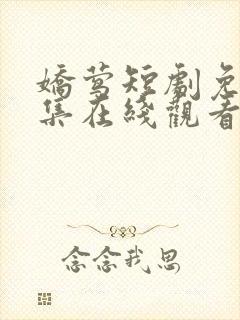 嬌莺短劇免
集在綫觀看
念念我思